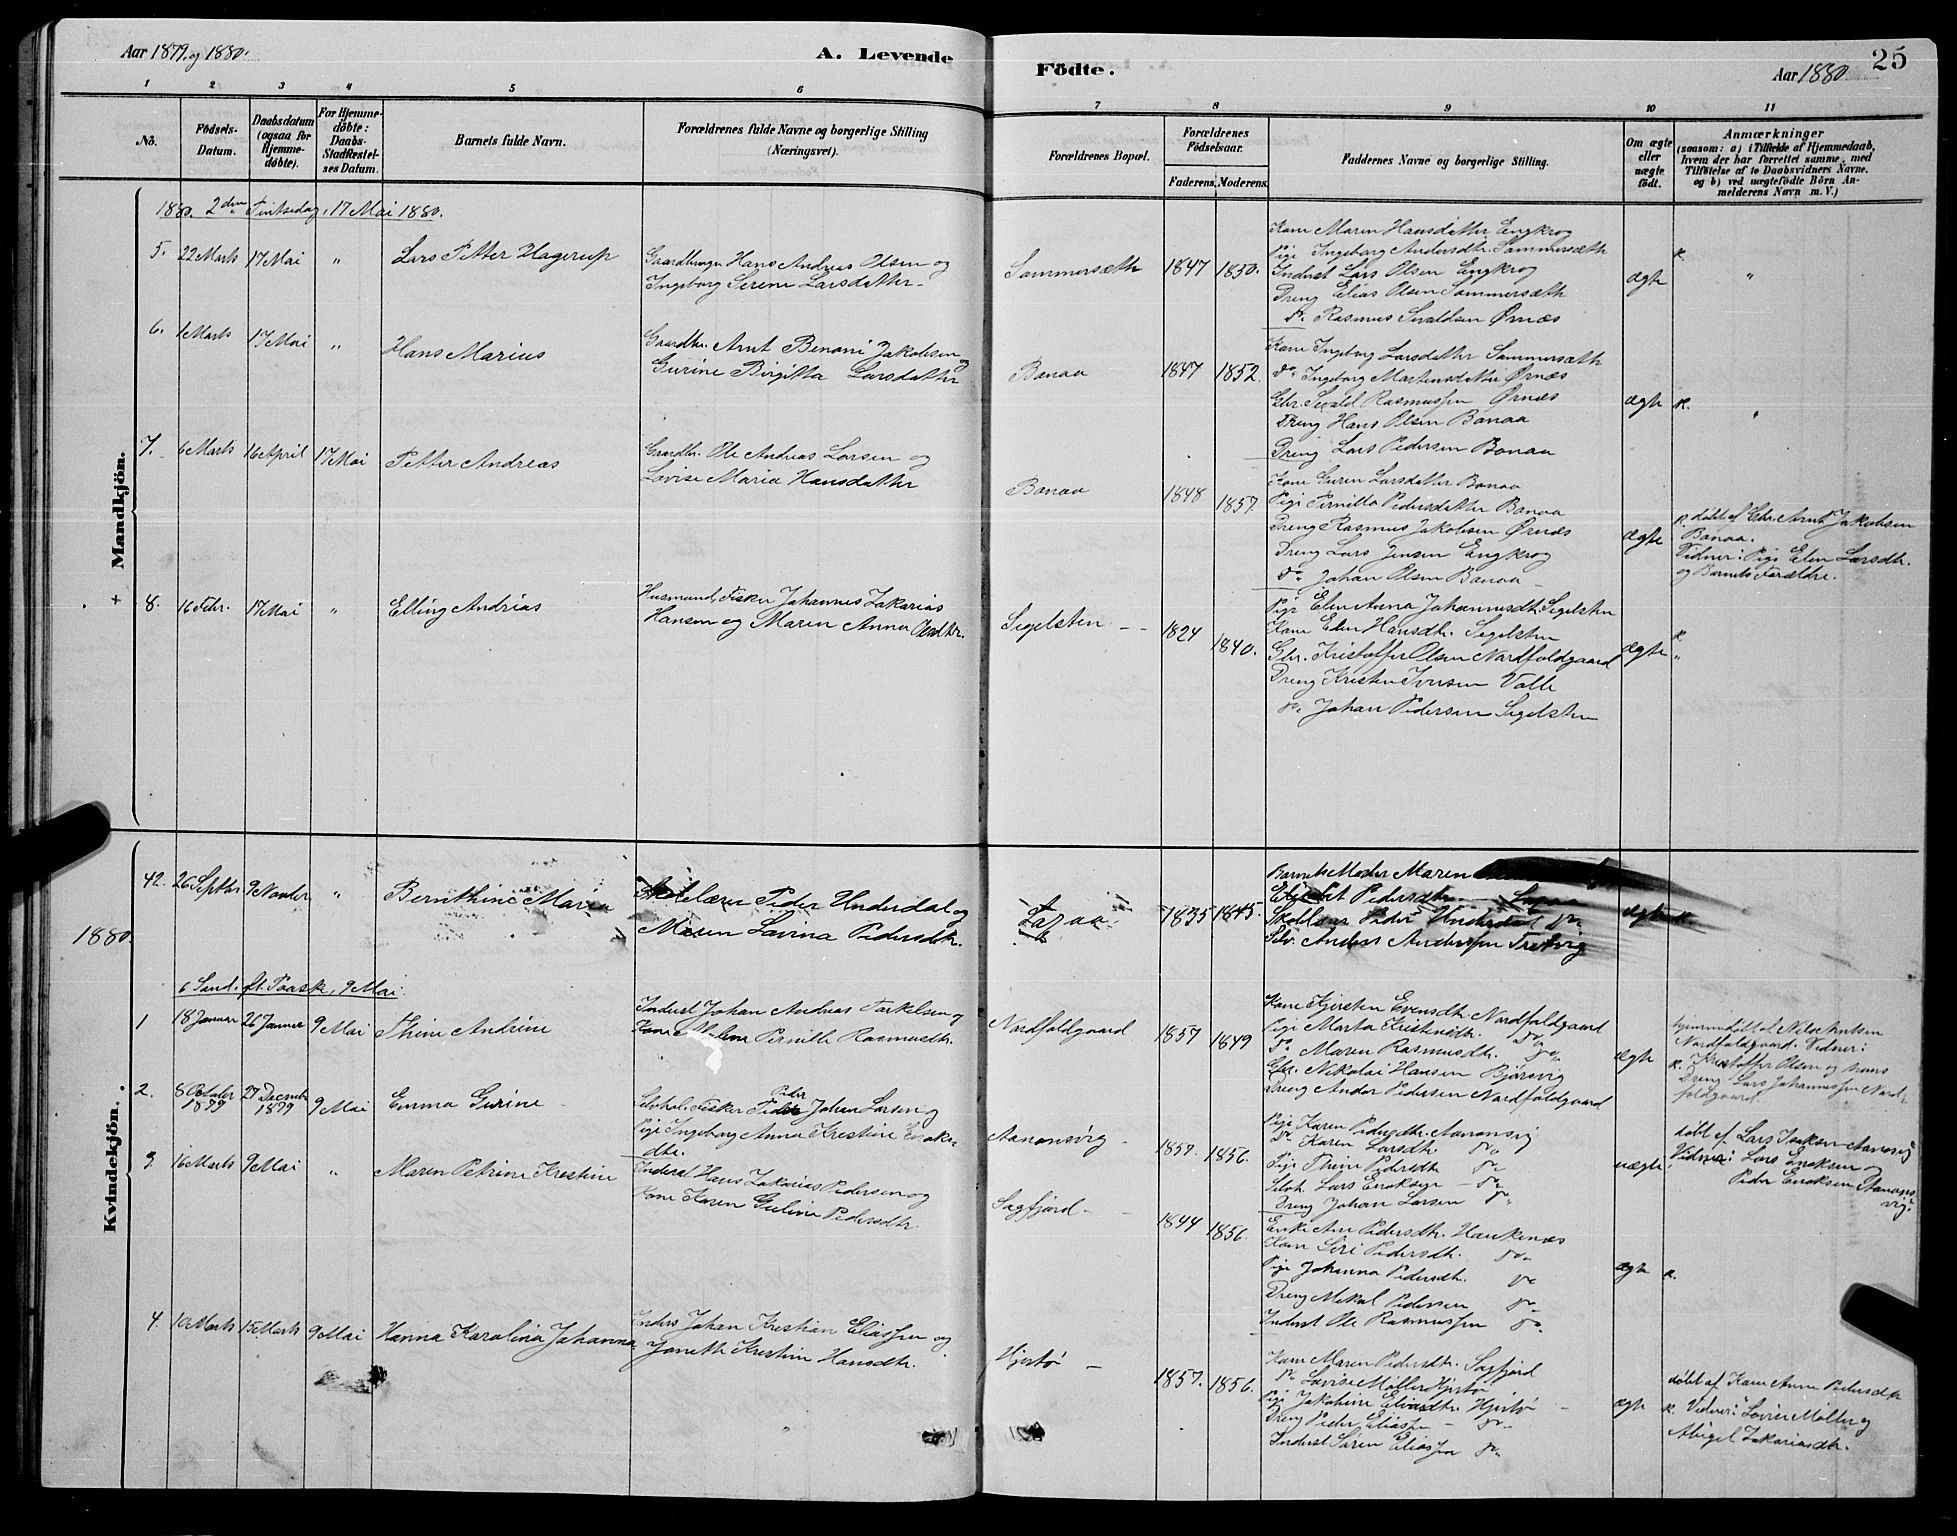 Aar 1879 og 1880.
A. Levende
Födte.
Aar 1880
25
1 2 3 4 5 6 7 8 9 10 11
No.
Födsels-
Datum.
Daabsdatum
(ogsaa for
Hjemme-
döbte).
For Hjemme-
döbte:
Daabs-
Stadfæstel-
ses Datum.
Barnets fulde Navn.
Forældrenes fulde Navne og borgerlige Stilling
(Næringsvei).
Forældrenes Bopæl.
Forældrenes
Födselsaar.
Faderens. Moderens.
Faddernes Navne og borgerlige Stilling.
Om ægte
eller
uægte
födt.
Anmærkninger
(saasom: a) i Tilfælde af Hjemmedaab,
hvem der har forrettet samme, med
Tilföielse af to Daabsvidners Navne.
og b) ved uægtefödte Börn An-
melderens Navn m. V.)
Mandkjön.
1880. 2den Pintsedag, 17 Mai 1880.
5. 22 Marts 17 Mai " Lars Petter Hagerup
Gaardbruger Hans Andreas Olsen og
Ingeborg Serine Larsdatter
Sommersæth 1847 1850.
Kone Maren Hansdatter Engkrog
Pige Ingeborg Andersdtr. Sommersæth
Inderst Lars Olsen Engkrog
Dreng Elias Olsen Sommersæth
do. Rasmus Sivaldsen Ørnæs
ægte k. "
6. 1 Marts 17 Mai " Hans Marius
Gaardbr. Arnt Benoni Jakobsen og
Gurine Birgitta Larsdatter
Bonaa 1847 1852.
Kone Ingeborg Larsdatter Sommersæth
do Ingeborg Martensdatter Ørnæs
Gbr. Sivald Rasmussen Ørnæs
Dreng Hans Olsen Bonaa
Dreng Lars Pedersen Bonaa
ægte k. "
7. 6 Marts 16 April 17 Mai Petter Andreas
Gaardbr. Ole Andreas Larsen og
Lovise Maria Hansdatter
Bonaa 1848 1857.
Kone Guren Larsdatter Bonaa
Pige Pernilla Pedersdatter Bonaa
Dreng Rasmus Jakobsen Ørnæs
Dreng Lars Jensen Engkrog
do. Johan Olsen Bonaa
ægte
k. döbt af Gbr. Arnt Jakobsen
Bonaa.
Vidner: Pige Elen Larsdtr.
og Barnets Forældre.
+ 8. 16 Febr. 17 Mai " Elling Andrias
Husmand, Fisker Johannes Zakarias
Hansen og Maren Anna
Segelsten 1824 1840.
Pige Elen Anna Johannesdtr. Segelsten
Kone Elen Hansdtr. Segelsten
Gbr. Kristoffer Olsen Nordfoldgaard
Dreng Kristen Iversen Valle
do. Johan Pedersen Segelsten
ægte k. "
Kvindekjön.
42. 26 Septbr 9 Novber " Bernthine Maria
Skolelærer Peder Underdal og
Maren Lavina Pedersdtr.
1835 1845.
Barnets Moder Maren
Pedersdtr.
Peder Underdal do
Selv. Anders Anderssen
ægte k.
1880.
6 Sönd. ft. Paaske, 9 Mai.
1 18 Januar 26 Januar 9 Mai Thine Andrine
Inderst Johan Andreas Torkelsen og
Kone Pernille Rasmusdtr.
Nordfoldgaard 1857 1849
Kone Kjersten Evensdtr. Nordfoldgaard
Pige Marta Kristensdtr. do
do Maren Rasmusdtr. do
Gbr. Nikolai Hansen Bjørsvig
Dreng Andor Pedersen Nordfoldgaard
ægte
hjemmedöbt af Nils
Nordfoldgaard. Vidner:
k. Kristoffer Olsen og hans
Dreng Lars Johannessen Nord-
foldgaard.
2. 8 October 1879 27 Decemb. 1879 9 Mai Emma Gurine
Peder
Fisker Johan Larsen og
Pige Ingeborg Anna Kristine
dtr.
Aanonsvig 1857. 1856.
Pige Karen Pedersdtr. Aanonsvig
do Karen Larsdtr. do
Pige Thine Pedersdtr do
Selvh. Lars Eriksen do
Dreng Johan Larsen do
uægte
döbt af Lars Isaksen Aanonsvig
Vidner: Lars Eriksen og
Peder Eriksen Aanons-
vig.
3. 16 Marts 9 Mai " Maren Petrine Kristine
Inderst Hans Zakarias Pedersen og
Kone Karen Gurine Pedersdtr.
Sagfjord 1844 1856.
Enke Ane Pedersdtr. Haukenæs
Kone Siri Pedersdtr. do
Pige Johanna Pedersdtr. do
Dreng Mekal Pedersen do
Inderst Ole Rasmussen do
ægte k.
4. 10 Marts 15 Marts 9 Mai Hanna Karolina Johanna
Inders Johan Kristian Eliassen og
Janette Kristine Hansdtr.
Hjertö 1857. 1856.
Kone Maren Pedersdtr. Sagfjord
do Lovise Möller Hjertö
Pige Jakobine Eliasdtr. Hjertö
Dreng Peder Eliassen do
Inderst Sören Eliassen do
ægte
döbt af Kone Anna Pedersdtr
k. Vidner: Lovise Möller og
Abigel Zakariasdtr.